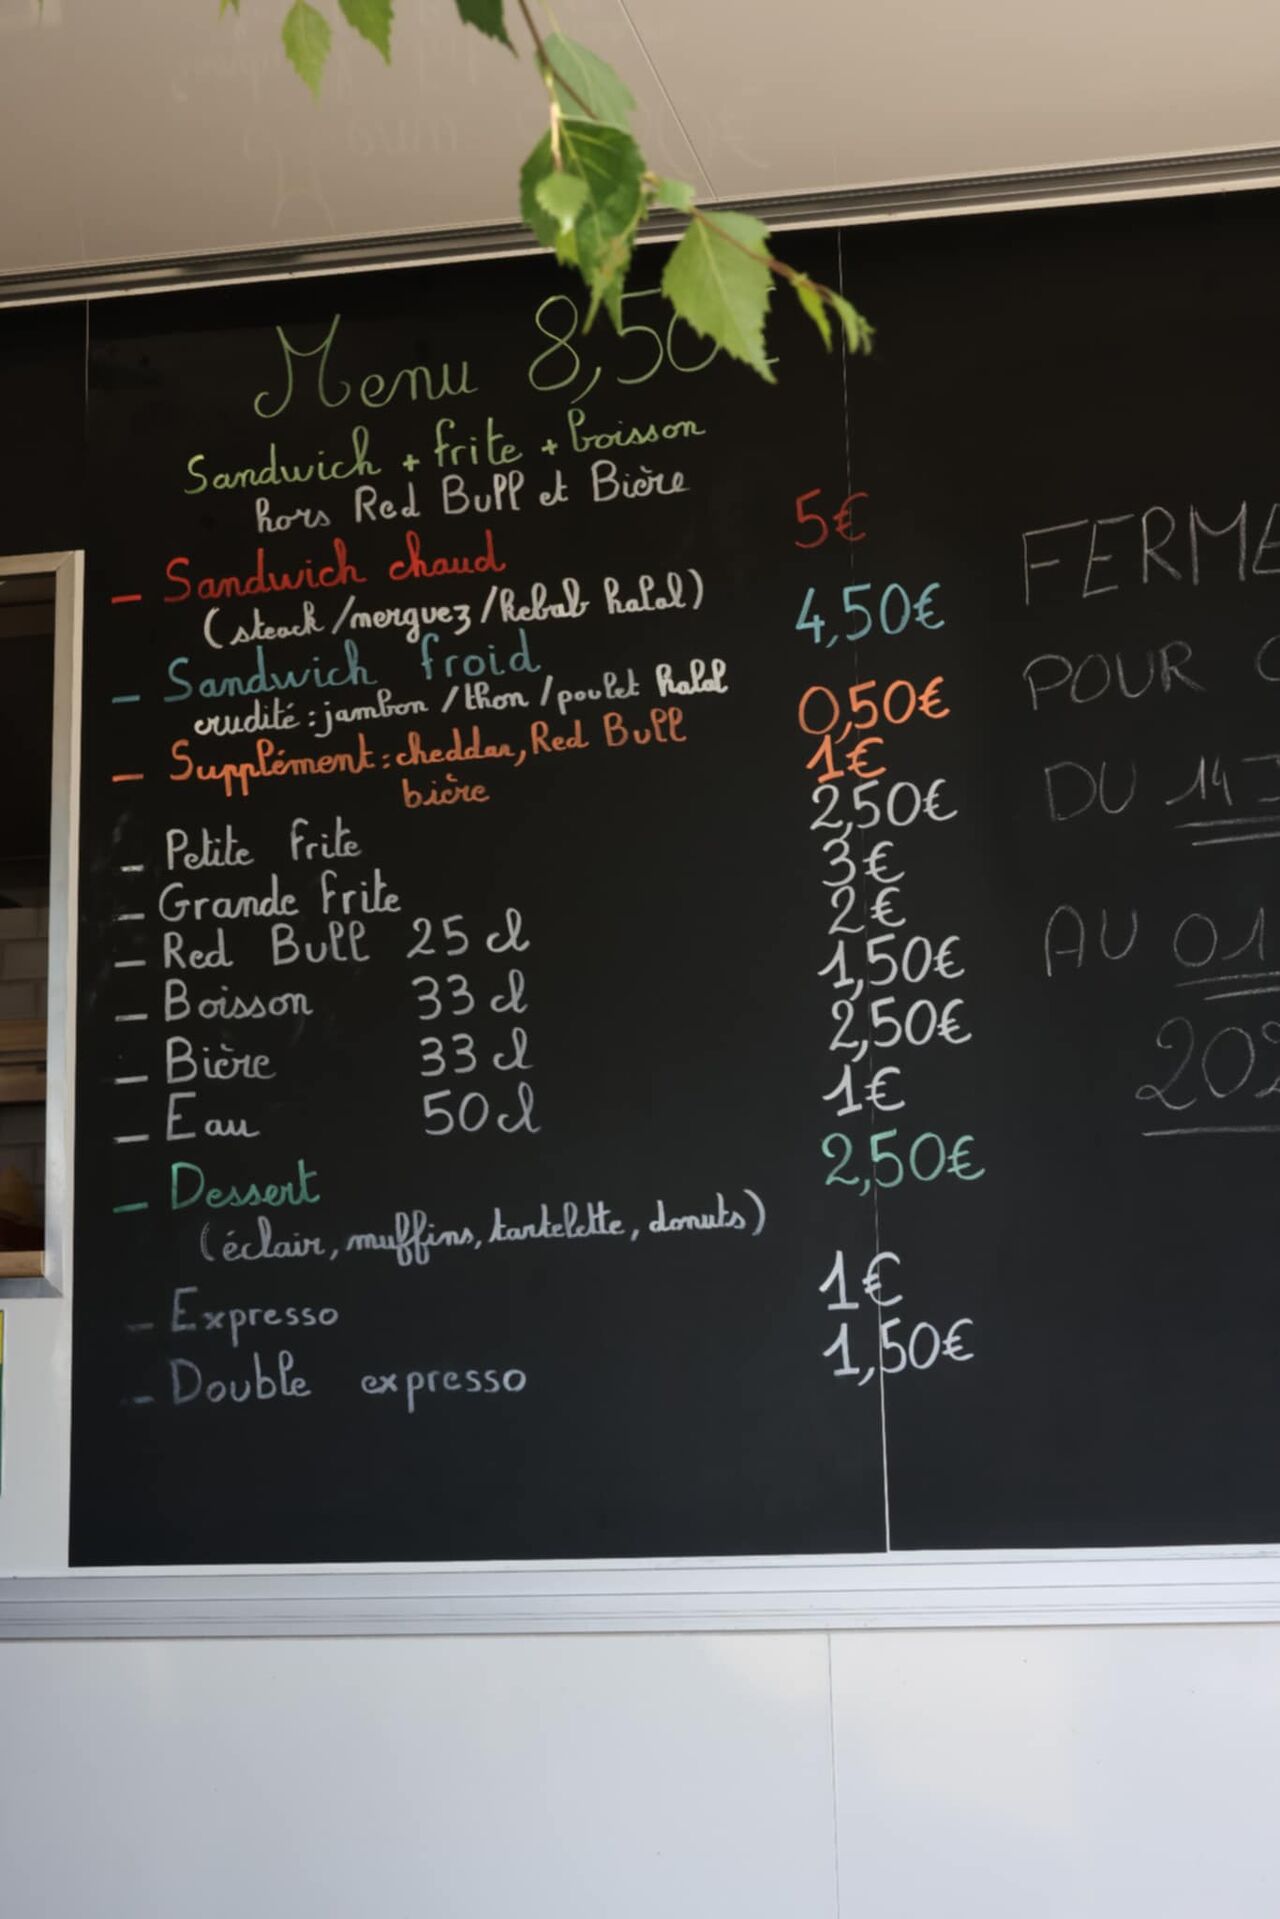 Menu 8,50€
Sandwich + frite + boisson
hors Red Bull et Bière
- Sandwich chaud 5€
(steack/merguez/Kebab halal)
- Sandwich froid 4,50€
crudité : jambon/thon/poulet halal
- Supplément : cheddar, Red Bull 0,50€
bière 1€
- Petite frite 2,50€
- Grande frite 3€
- Red Bull 25 cl 2€
- Boisson 33 cl 1,50€
- Bière 33 cl 2,50€
- Eau 50 cl 1€
- Dessert 2,50€
(éclair, muffins, tartelette, donuts)
- Expresso 1€
- Double expresso 1,50€
POUR
DU 14
AU 01